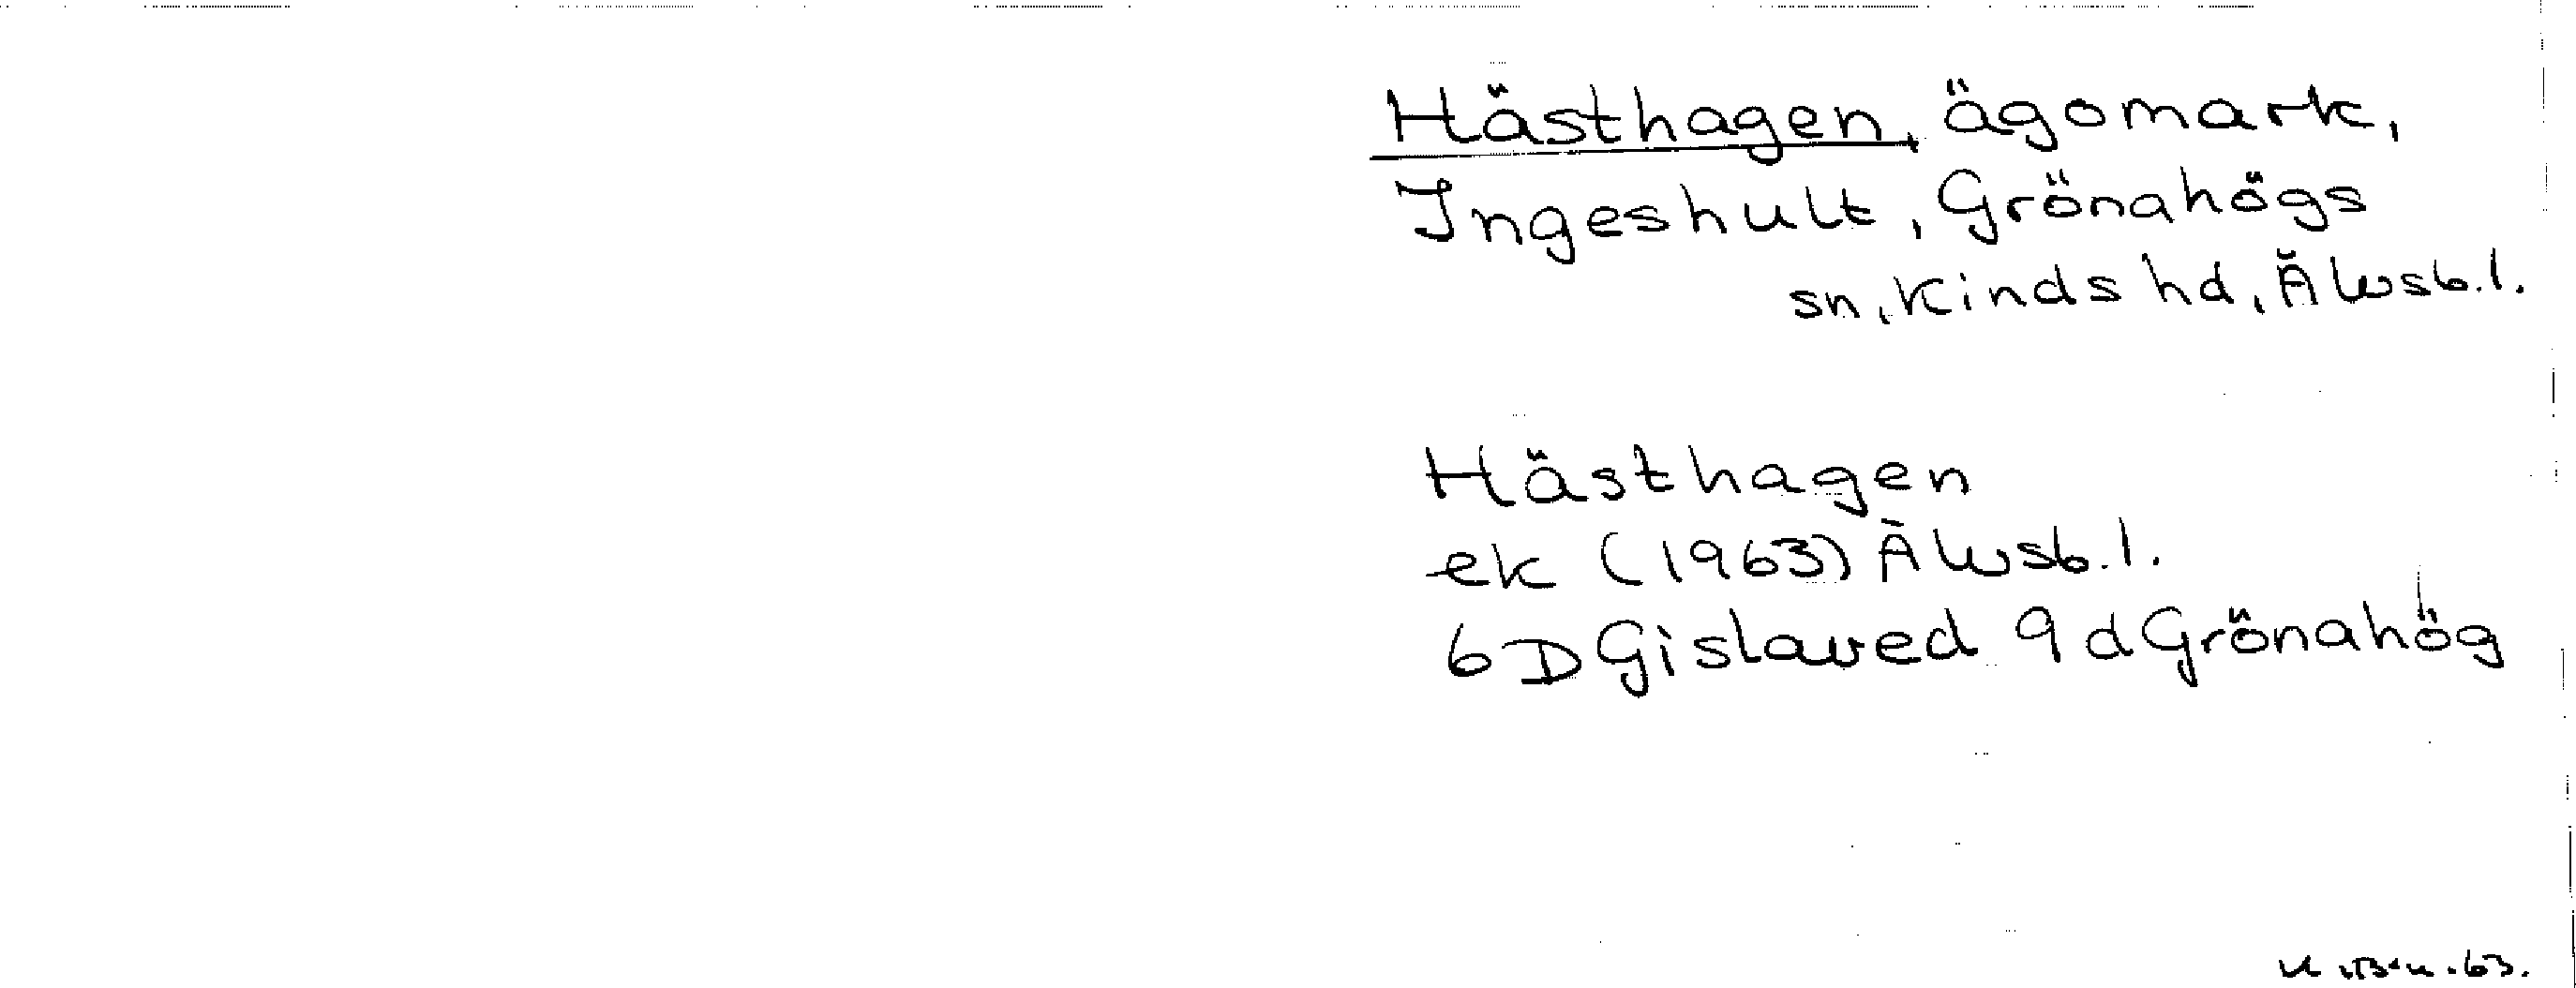 Hästhagen, ägomark,
Ingeshult, Grönahögs
sn, Kinds hd, Älvsb.l.
Hästhagen
ek (1963) Älvsb.l.
6D Gislaved 9d Grönahög
63.